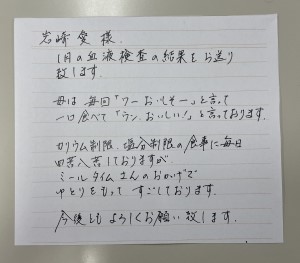 岩崎愛様
1月の血液検査の結果をお送り
致します.
母は毎回「ワーおいしそー」と言って
一口食べて「ウン、おいしい!」と言っております.
カリウム制限、塩分制限の食事に毎日
四苦八苦しておりますが
ミールタイムさんのおかげで
ゆとりをもって すごしております.
今後とも よろしくお願い致します.